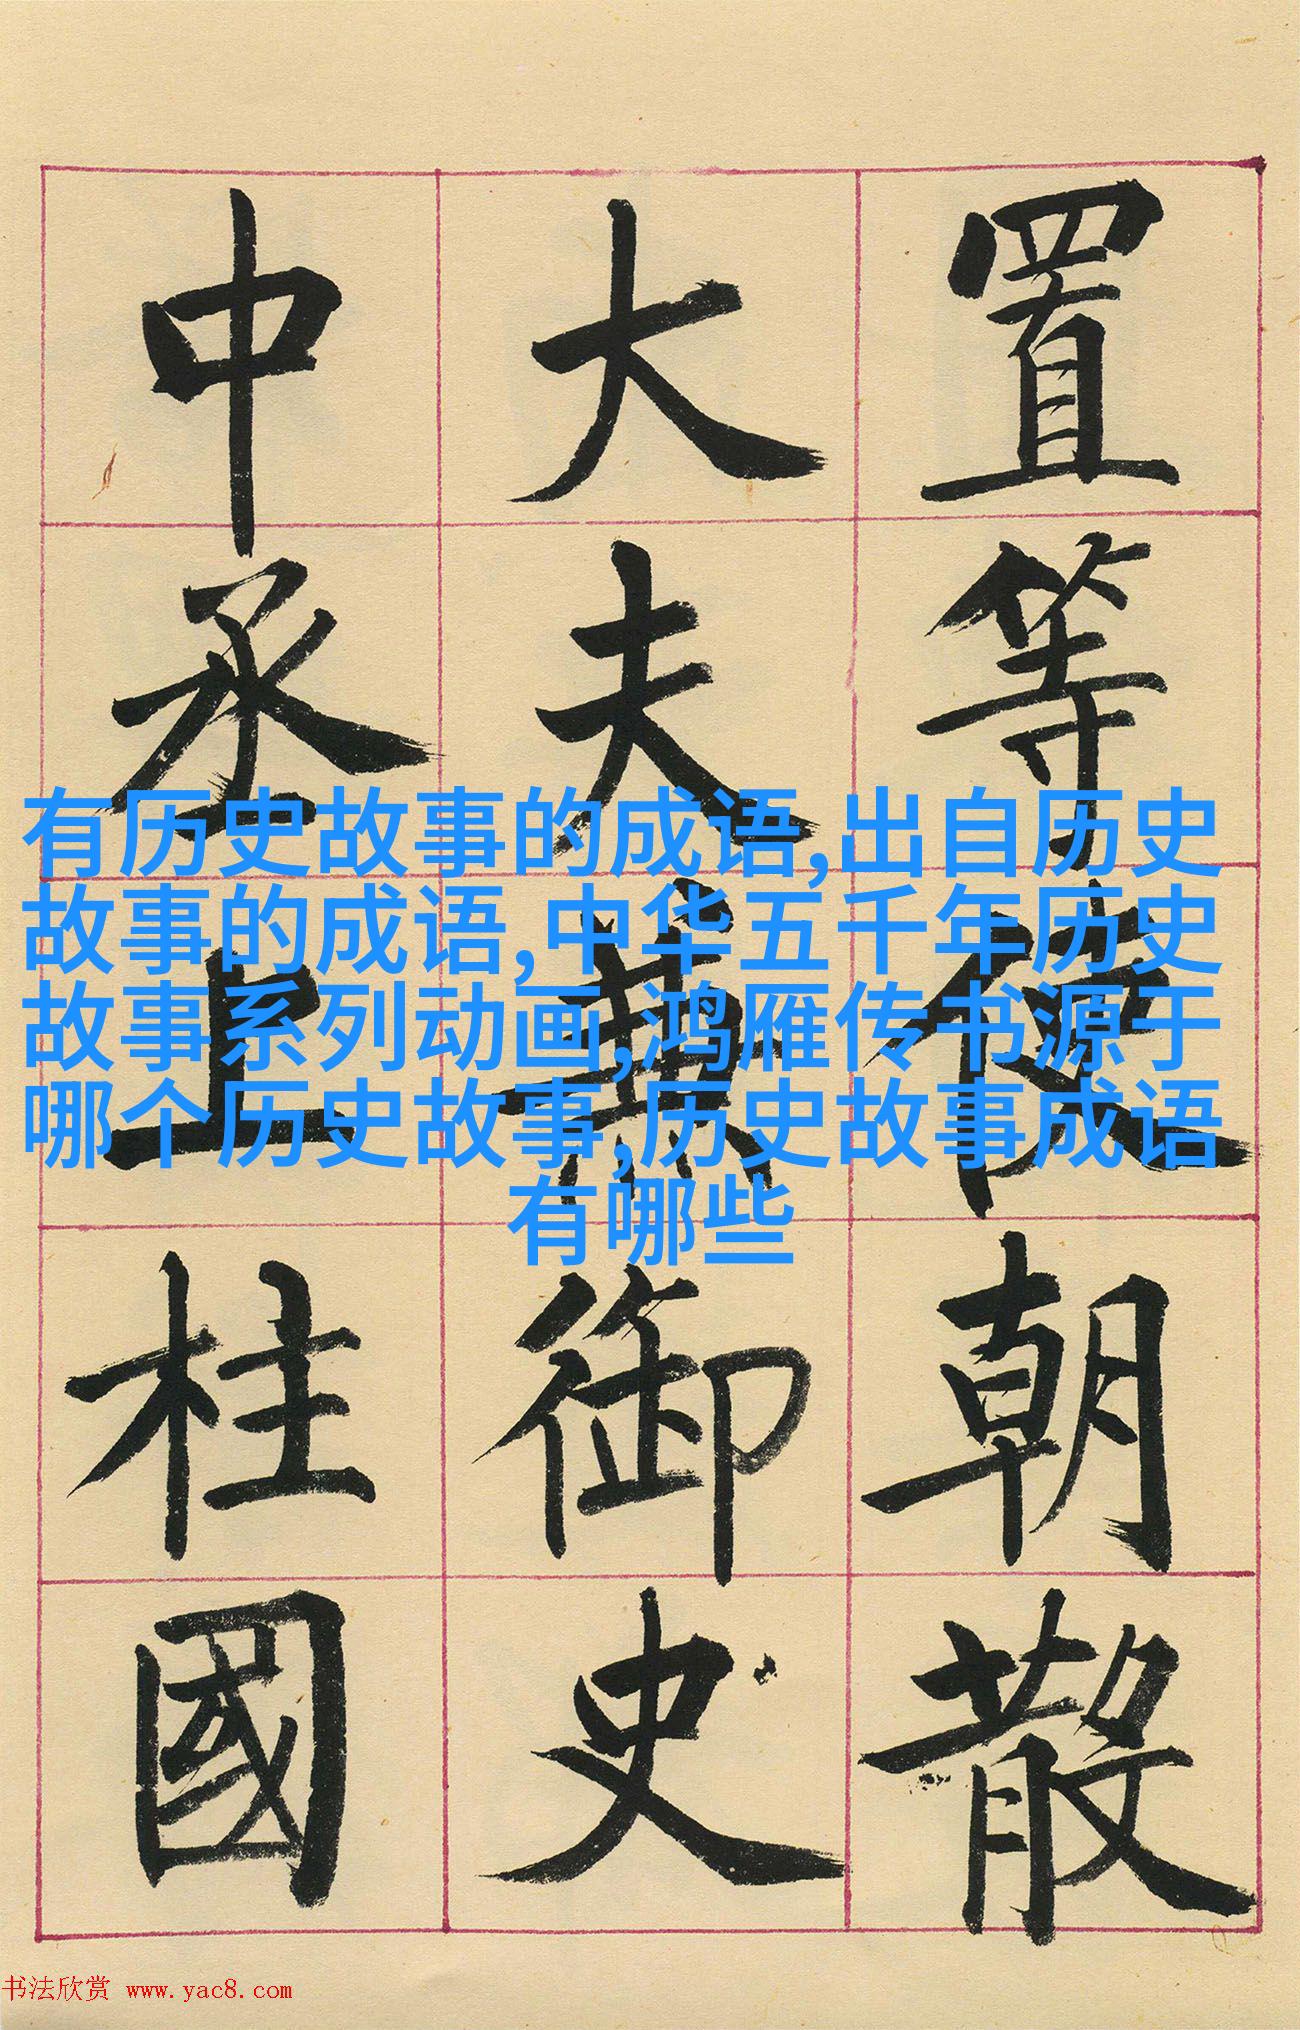 置等使朝散
大夫兼御史
中丞上柱國
有历史故事的成语,出自历史
故事的成语,中华五千年历史
故事系列动画,鸿雁传书源于
哪个历史故事,历史故事成语
有哪些
书法欣赏 www.yac8.com